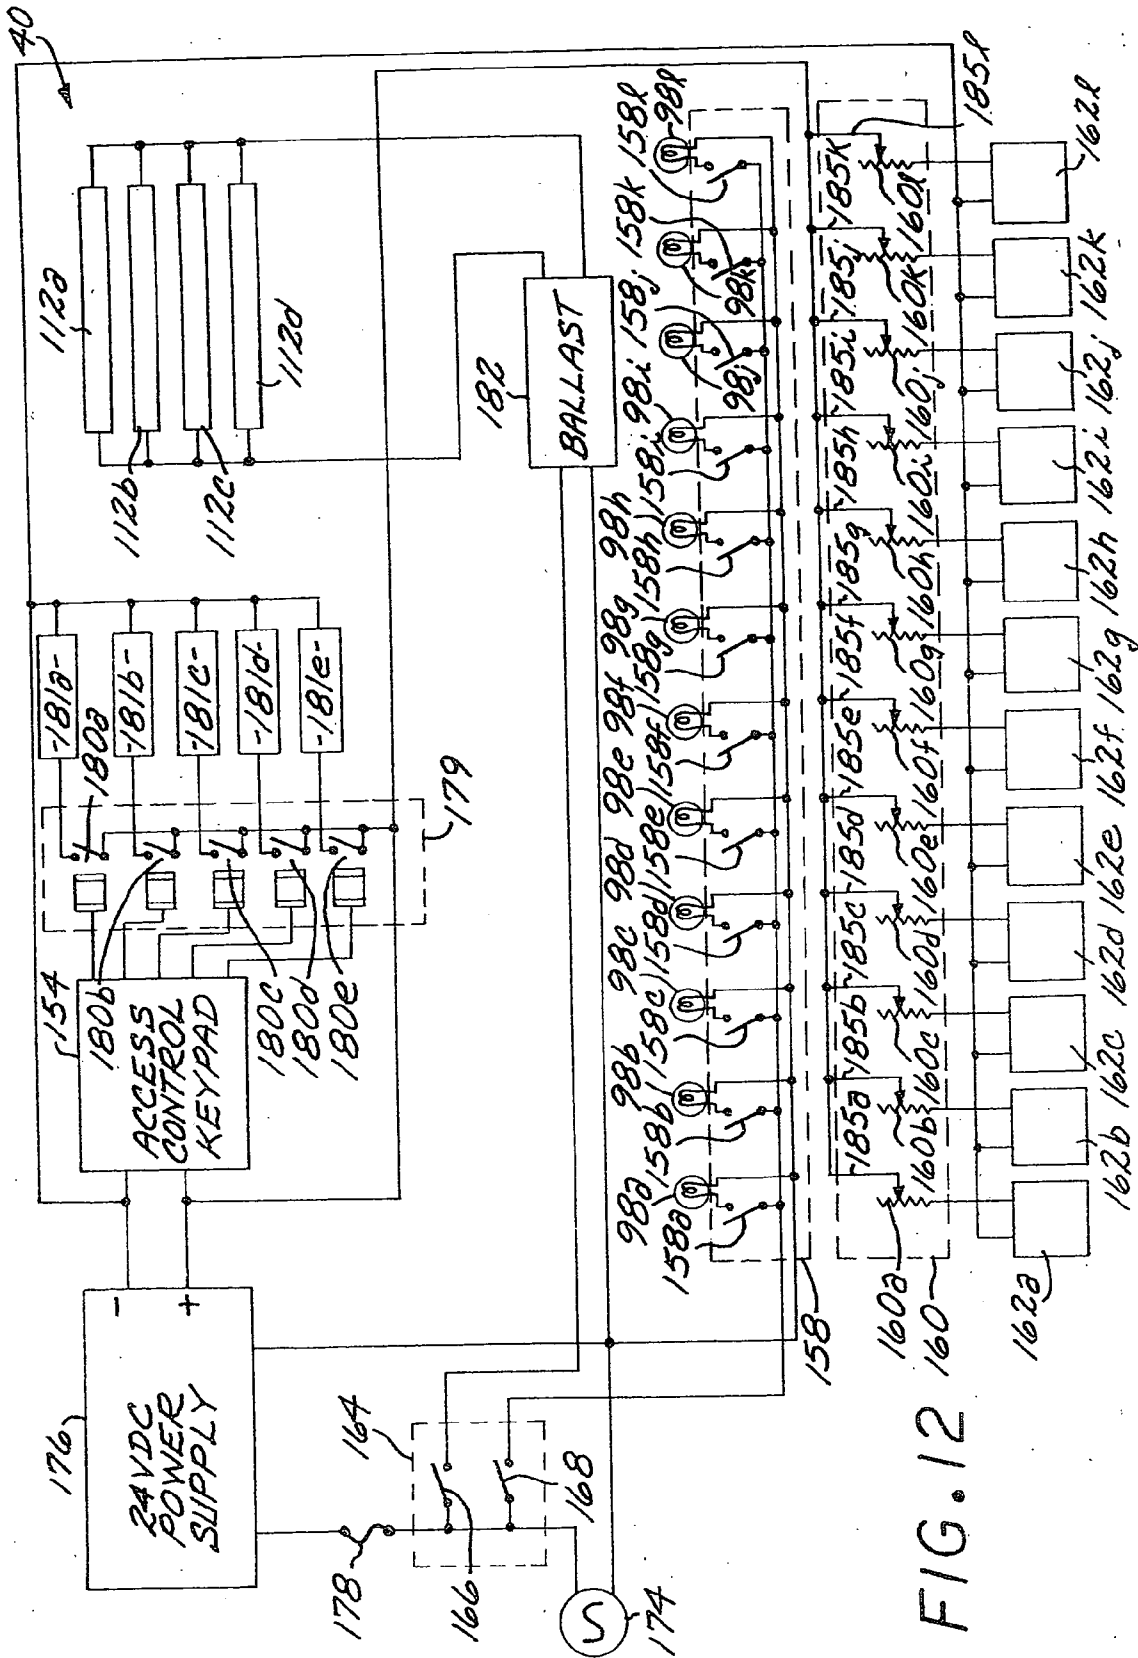 40
112a
112b
112c
112d
-181a-
180a
-181b-
-181c-
-181d-
-181e-
179
154
180b
180c
180d
180e
ACCESS
CONTROL
KEYPAD
176
24VDC
POWER
SUPPLY
-
+
178
164
166
168
S
174
182
BALLAST
98a
98b
98c
98d
98e
98f
98g
98h
98i
98j
98k
98l
158a
158b
158c
158d
158e
158f
158g
158h
158i
158j
158k
158l
158
185a
185b
185c
185d
185e
185f
185g
185h
185i
185j
185k
185l
160a
160b
160c
160d
160e
160f
160g
160h
160i
160j
160k
160l
160
162a
162b
162c
162d
162e
162f
162g
162h
162i
162j
162k
162l
FIG. 12